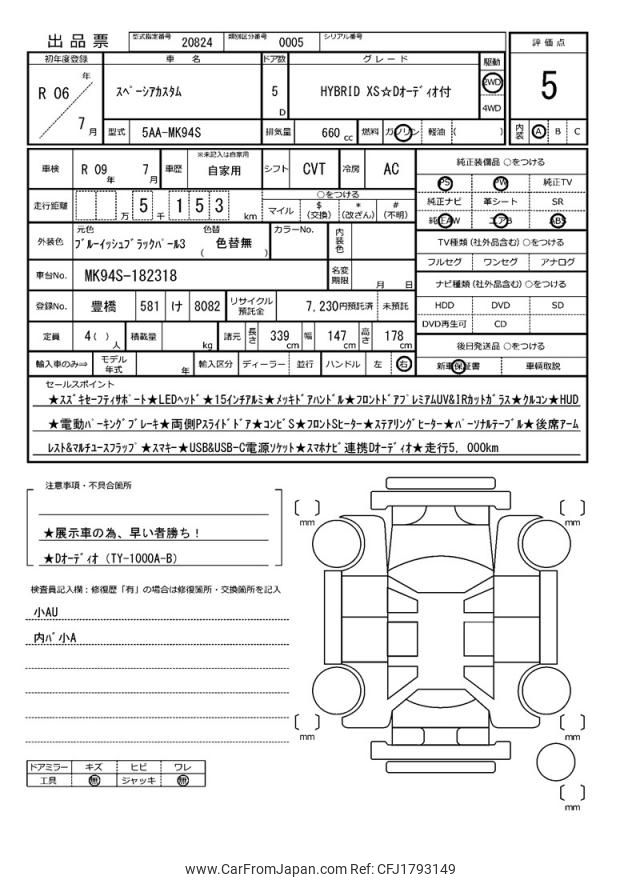 出品票 型式指定番号 20824 類別区分番号 0005 シリアル番号
初年度登録 車名 ドア数 グレード 駆動 評価点
R 06 年 7 月
スペーシアカスタム 5 D HYBRID XS☆Dオーディオ付 2WD 4WD 5
型式 5AA-MK94S 排気量 660 cc 燃料 ガソリン 軽油 ( ) 内装 A B C
車検 R 09 年 7 月 車歴 ※未記入は自家用 自家用 シフト CVT 冷房 AC
純正装備品 ○をつける
PS PW 純正TV
純正ナビ 革シート SR
純正AW エアB ABS
走行距離 万 5 千 1 5 3 km ○をつける
マイル $ (交換) * (改ざん) # (不明)
外装色 元色 ブルーイッシュブラックパール3 色替 ( 色替無 ) カラーNo. 内装色
TV種類 (社外品含む) ○をつける
フルセグ ワンセグ アナログ
車台No. MK94S-182318 名変期限 月 日
ナビ種類 (社外品含む) ○をつける
HDD DVD SD
DVD再生可 CD
登録No. 豊橋 581 け 8082 リサイクル預託金 7,230円預託済 未預託
定員 4( ) 人 積載量 kg 諸元 長さ 339 cm 幅 147 cm 高さ 178 cm
後日発送品 ○をつける
新車保証書 車輌取説
輸入車のみ⇒ モデル年式 年 輸入区分 ディーラー 並行 ハンドル 左 右
セールスポイント
★スズキセーフティサポート★LEDヘッド★15インチアルミ★メッキドアハンドル★フロントドアプレミアムUV&IRカットガラス★クルコン★HUD
★電動パーキングブレーキ★両側Pスライドドア★コンビS★フロントSヒーター★ステアリングヒーター★パーソナルテーブル★後席アーム
レスト&マルチユースフラップ★スマキー★USB&USB-C電源ソケット★スマホナビ連携Dオーディオ★走行5,000km
注意事項・不具合箇所
★展示車の為、早い者勝ち！
★Dオーディオ (TY-1000A-B)
検査員記入欄：修復歴「有」の場合は修復箇所・交換箇所を記入
小AU
内バ小A
mm
mm
mm
mm
mm
ドアミラー キズ ヒビ ワレ
工具 無 ジャッキ 無
www.CarFromJapan.com Ref: CFJ1793149